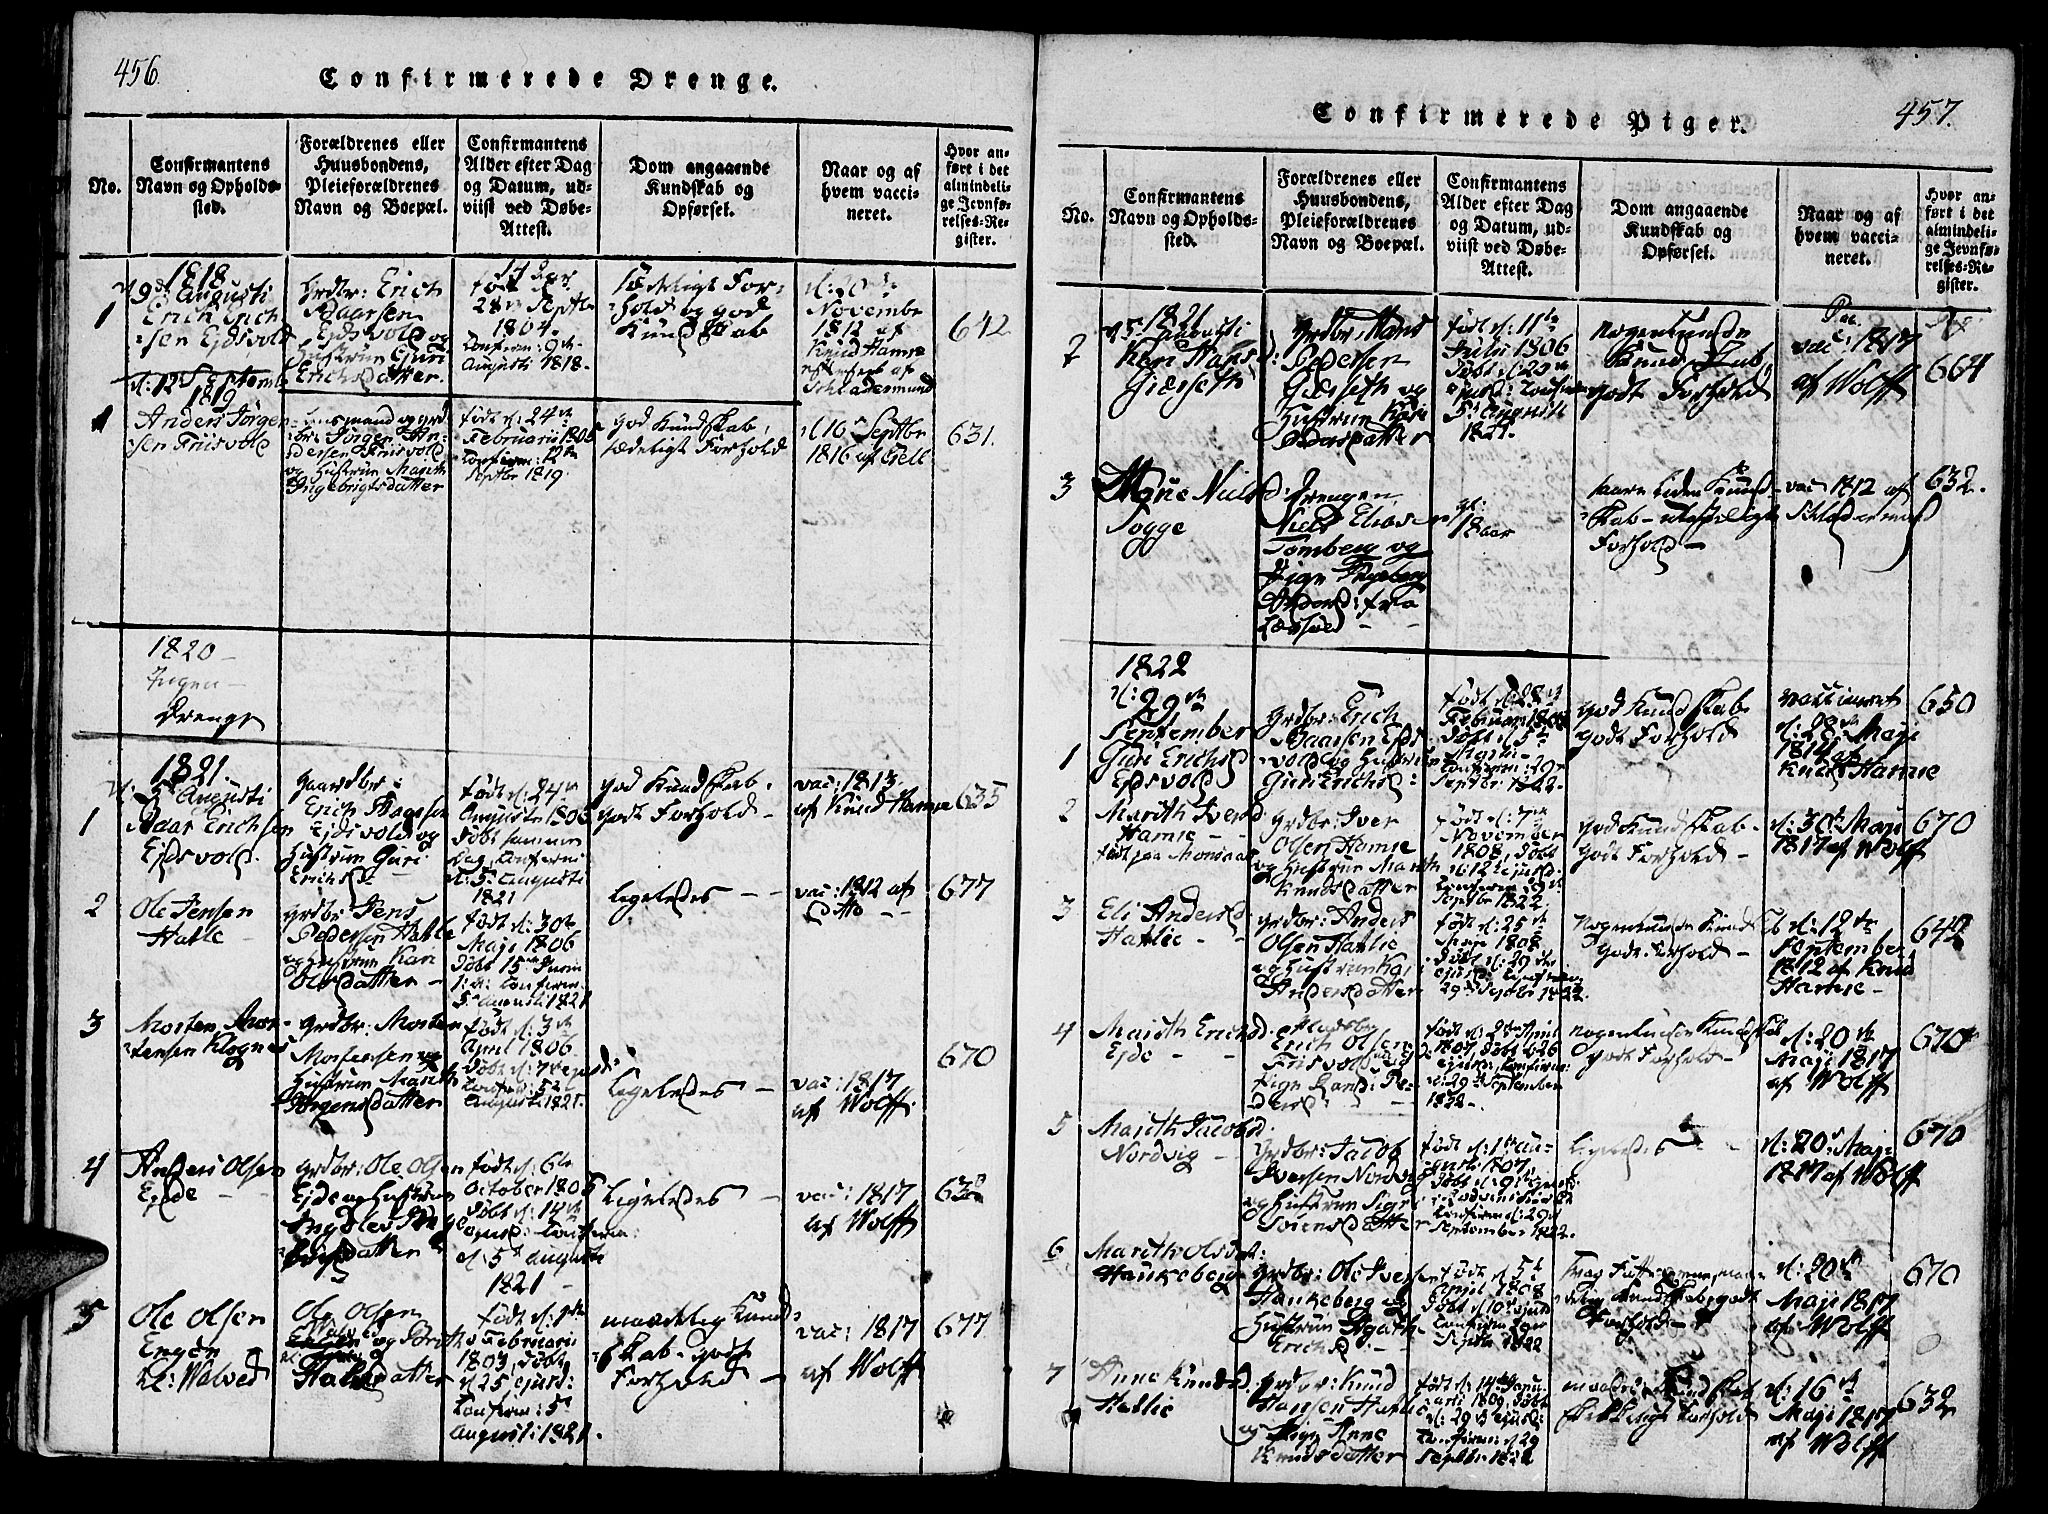 456.
Confirmerede Drenge.
No.
Confirmantens
Navn og Opholds-
sted.
Forældrenes eller
Huusbondens,
Pleieforældrenes
Navn og Boepæl.
Confirmantens
Alder efter Dag
og Datum, ud-
viist ved Døbe-
Attest.
Dom angaaende
Kundskab og
Opførsel.
Naar og af
hvem vacci-
neret.
Hvor an-
ført i det
almindeli-
ge Jevnfø-
relses-Re-
gister.
1818
d. 9de Augusti
1
Erich Erich-
sen Ejdsvold
Grdbr: Erich
Baarsen
Ejdsvold og
Hustrue Guri
Erichsdatter.
14 Aar
født
28de Septbr
1804.
Confirm: 9de
Augusti 1818.
Sædeligt For-
hold og god
Kundskab
d: 20de
Novembr
1812 af
Knud Hamre
642
d: 12te Septemb
1819
1
Anders Jørgen-
sen Friisvold
Lensmand og grd
br: Jørgen An-
dersen Friisvold
og Hustrue Marith
Ingebrigtsdatter
født d: 24de
Februarii 1805
Confirm: 12te
Septbr 1819
god Kundskab,
sædeligt Forhold
d 10de Septbr
1816 af Gell
631.
1820
Ingen
Drenge
1821.
d: 5te Augusti
1
Baar Erichsen
Ejdsvold.
gaardbr:
Erich Baarsen
Ejdsvold og
Hustrue Guri
Erichsd
født d: 24de
Augusti 1806
døbt samme
Dag, Confirm:
d: 5. Augusti
1821
god Kundskab.
godt Forhold
vac: 1813
af Knud Hamre
635
2
Ole Jensen
Hatle
grdbr Jens
Pedersen Hatle
og Hustrue Kari
Olesdatter
født d: 30te
Maji 1806
døbt 15de Junii
Confirm:
5te Augusti 1821
Ligeledes
vac: 1812 af
Ditto
677
3
Morten Mor-
tensen Klognes
grdbr: Morten
Mortensen og
Hustrue Marith
Jørgensdatter
født d: 3de
April 1806
døbt d: 7de ejusd:
Confirm: 5te
Augusti 1821.
Ligeledes
vac: 1817
af Wolff
670
4
Anders Olsen
Ejde
grdbr: Ole Olsen
Ejde og Hustrue
født d: 6te
October 1805
døbt d: 14de
ejusd: Confirm:
d: 5te Augusti
1821
Ligeledes
vac: 1817
af Wolff
638
5
Ole Olsen
Engen
Ole Olsen
og Brith
Halsdatter
født d: 1ste
Februarii
1803, døbt
d 25 ejusd:
Confirm: 5te
Augusti 1821.
maadelig Kund-
skab. godt
Forhold
vac: 1817
af Wolff
677
Confirmerede Piger.
457.
No.
Confirmantens
Navn og Opholds-
sted.
Forældrenes eller
Huusbondens,
Pleieforældrenes
Navn og Boepæl.
Confirmantens
Alder efter Dag
og Datum, ud-
viist ved Døbe-
Attest.
Dom angaaende
Kundskab og
Opførsel.
Naar og af
hvem vacci-
neret.
Hvor an-
ført i det
almindeli-
ge Jevnfø-
relses-Re-
gister.
1821
d 5. Augusti
2
Kari Hansd:
Giærseth
Grdbr: Hans
Pedersen
Giærseth og
Hustrue Kari
Pedersdatter
født d: 11te
Julii 1806
døbt d: 20de
ejusd: Confirm
5te Augusti
1821.
nogenlunde
Kundskab,
godt Forhold
vac: 1817
af Wolff
664
3
Niels
Togge
Drengen
Niels Eliasen
Tomberg og
Pige Ingeborg
Andersd: fra
18 aar
saare liden Kund-
skab - usædeligt
Forhold
vac: 1812 af
632.
1822
d: 29de
September
1
Guri Erichsd
Ejdsvold
grdbr: Erich
Baarsen Ejds-
vold og Hustrue
Guri Erichsd:
født d: 28de
Februar 1808
døbt d. 5te
Martii
Confirm: 29de
Septbr: 1822.
god Kundskab
godt Forhold
vaccineret
d: 28de Maji
1814 af
Knud Hamre
650
2
Marith Iversd
Hamre
grdbr: Iver
Olsen Hamre
og Hustrue Marith
Knudsdatter
født d: 7de
November
1808, døbt
d: 12 ejusd:
Confirm: 29de
Septbr 1822.
god Kundskab.
godt Forhold
d: 30te Maji
1817 af Wolff
670
3
Eli Andersd:
Hatlie
grdbr: Anders
Olsen Hatlie
og Hustrue Kari
Andersdatter
født d: 25de
Maji 1808
døbt d: 29de
ejusd: Confirm:
29de Septbr 1822.
Nogenlunde Kundsk
godt Forhold
d: 12te
September
1812 af Knud
Hamre
642
4
Marith Erichsd.
Ejde
Pladsbr:
Erich Olsen
Friisvold
født d: 2den April
1807
d: 29de September
1822
nogenlunde Kundskab
godt Forhold
d: 20de
Maji 1817
af Wolff
670
5
Marith Jacobsd
Nordvig
Grdbr: Jacob
Iversen Nordvig
og Hustrue Sigri
Svensdatter
født d: 1ste Au-
gusti 1807,
Confirm d: 29de
September 1822.
Ligeledes
d: 20de Maji
1817 af Wolff
670
6
Marith Olsdat:
Haukeberg
grdbr: Ole Iversen
Haukeberg og
Hustrue Agathe
Erichsd:
født d: 5te
April 1808
døbt d: 10de ejusd:
Septbr 1822
d: 20de
Maji 1817
af Wolff
670
7
Anne Knudsd
Hatlie
grdbr: Knud
Hansen Hatlie
og Pige Anne
Knudsdatter
født d: 14de Janu-
arii 1809, døbt
d: 29 ejusd:
Confirm: d: 29
Septbr: 1822
Kundskab
skikkeligt Forhold
d: 16de
Maji 1817
af Wolff
632